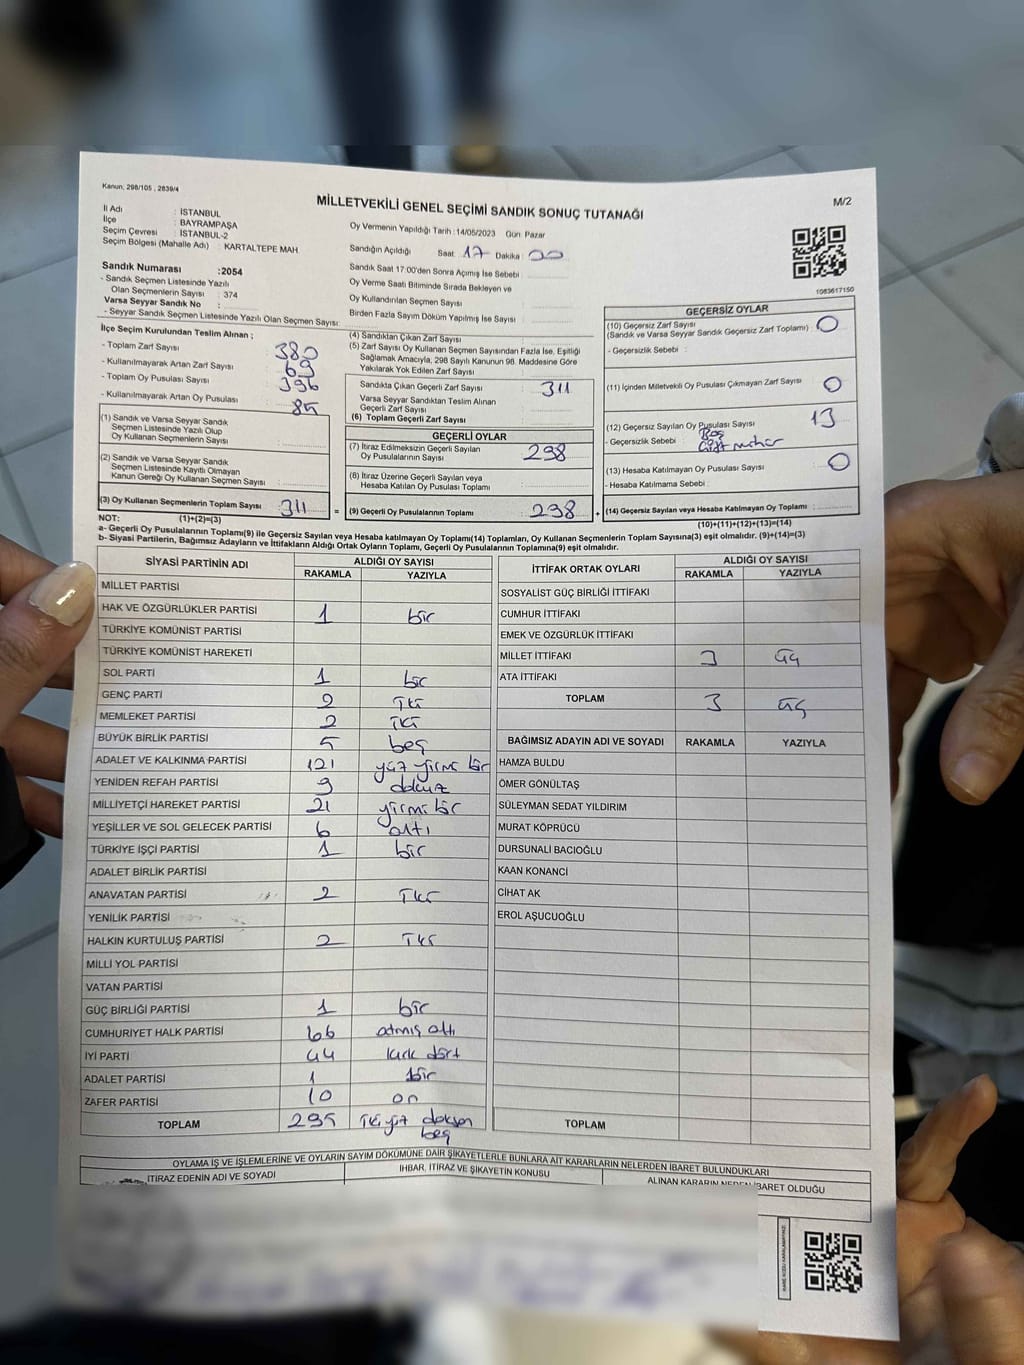 Kanun; 298/105 , 2839/4
MİLLETVEKİLİ GENEL SEÇİMİ SANDIK SONUÇ TUTANAĞI
M/2
İl Adı : İSTANBUL
İlçe : BAYRAMPAŞA
Seçim Çevresi : İSTANBUL-2
Seçim Bölgesi (Mahalle Adı) : KARTALTEPE MAH
Oy Vermenin Yapıldığı Tarih : 14/05/2023 Gün: Pazar
Sandığın Açıldığı Saat 17 Dakika 00
Sandık Saat 17:00'den Sonra Açımış İse Sebebi
Oy Verme Saati Bitiminde Sırada Bekleyen ve
Oy Kullandırılan Seçmen Sayısı
Birden Fazla Sayım Döküm Yapılmış İse Sayısı
1083617150
Sandık Numarası :2054
- Sandık Seçmen Listesinde Yazılı
Olan Seçmenlerin Sayısı : 374
Varsa Seyyar Sandık No :
- Seyyar Sandık Seçmen Listesinde Yazılı Olan Seçmen Sayısı :
İlçe Seçim Kurulundan Teslim Alınan ;
- Toplam Zarf Sayısı : 380
- Kullanılmayarak Artan Zarf Sayısı : 69
- Toplam Oy Pusulası Sayısı : 396
- Kullanılmayarak Artan Oy Pusulası : 85
(1) Sandık ve Varsa Seyyar Sandık
Seçmen Listesinde Yazılı Olup
Oy Kullanan Seçmenlerin Sayısı :
(2) Sandık ve Varsa Seyyar Sandık
Seçmen Listesinde Kayıtlı Olmayan
Kanun Gereği Oy Kullanan Seçmen Sayısı :
(3) Oy Kullanan Seçmenlerin Toplam Sayısı : 311 =
(1)+(2)=(3)
(4) Sandıktan Çıkan Zarf Sayısı
(5) Zarf Sayısı Oy Kullanan Seçmen Sayısından Fazla İse, Eşitliği
Sağlamak Amacıyla, 298 Sayılı Kanunun 98. Maddesine Göre
Yakılarak Yok Edilen Zarf Sayısı :
Sandıkta Çıkan Geçerli Zarf Sayısı : 311
Varsa Seyyar Sandıktan Teslim Alınan
Geçerli Zarf Sayısı
(6) Toplam Geçerli Zarf Sayısı
GEÇERLİ OYLAR
(7) İtiraz Edilmeksizin Geçerli Sayılan
Oy Pusulalarının Sayısı : 298
(8) İtiraz Üzerine Geçerli Sayılan veya
Hesaba Katılan Oy Pusulası Toplamı :
(9) Geçerli Oy Pusulalarının Toplamı : 298 +
GEÇERSİZ OYLAR
(10) Geçersiz Zarf Sayısı : 0
(Sandık ve Varsa Seyyar Sandık Geçersiz Zarf Toplamı)
- Geçersizlik Sebebi :
(11) İçinden Milletvekili Oy Pusulası Çıkmayan Zarf Sayısı : 0
(12) Geçersiz Sayılan Oy Pusulası Sayısı : 13
- Geçersizlik Sebebi : Boş
Çift mühür
(13) Hesaba Katılmayan Oy Pusulası Sayısı : 0
- Hesaba Katılmama Sebebi :
(14) Geçersiz Sayılan veya Hesaba Katılmayan Oy Toplamı :
(10)+(11)+(12)+(13)=(14)
NOT:
a- Geçerli Oy Pusulalarının Toplamı(9) ile Geçersiz Sayılan veya Hesaba Katılmayan Oy Toplamı(14) Toplamları, Oy Kullanan Seçmenlerin Toplam Sayısına(3) eşit olmalıdır. (9)+(14)=(3)
b- Siyasi Partilerin, Bağımsız Adayların ve İttifakların Aldığı Ortak Oyların Toplamı, Geçerli Oy Pusulalarının Toplamına(9) eşit olmalıdır.
SİYASİ PARTİNİN ADI ALDIĞI OY SAYISI
RAKAMLA YAZIYLA
MİLLET PARTİSİ
HAK VE ÖZGÜRLÜKLER PARTİSİ 1 bir
TÜRKİYE KOMÜNİST PARTİSİ
TÜRKİYE KOMÜNİST HAREKETİ
SOL PARTİ 1 bir
GENÇ PARTİ 2 iki
MEMLEKET PARTİSİ 2 iki
BÜYÜK BİRLİK PARTİSİ 5 beş
ADALET VE KALKINMA PARTİSİ 121 yüz yirmi bir
YENİDEN REFAH PARTİSİ 9 dokuz
MİLLİYETÇİ HAREKET PARTİSİ 21 yirmi bir
YEŞİLLER VE SOL GELECEK PARTİSİ 6 altı
TÜRKİYE İŞÇİ PARTİSİ 1 bir
ADALET BİRLİK PARTİSİ
ANAVATAN PARTİSİ 2 iki
YENİLİK PARTİSİ
HALKIN KURTULUŞ PARTİSİ 2 iki
MİLLİ YOL PARTİSİ
VATAN PARTİSİ
GÜÇ BİRLİĞİ PARTİSİ 1 bir
CUMHURİYET HALK PARTİSİ 66 atmış altı
İYİ PARTİ 44 kırk dört
ADALET PARTİSİ 1 bir
ZAFER PARTİSİ 10 on
TOPLAM 295 iki yüz doksan
beş
İTTİFAK ORTAK OYLARI ALDIĞI OY SAYISI
RAKAMLA YAZIYLA
SOSYALİST GÜÇ BİRLİĞİ İTTİFAKI
CUMHUR İTTİFAKI
EMEK VE ÖZGÜRLÜK İTTİFAKI
MİLLET İTTİFAKI 3 üç
ATA İTTİFAKI
TOPLAM 3 üç
BAĞIMSIZ ADAYIN ADI VE SOYADI RAKAMLA YAZIYLA
HAMZA BULDU
ÖMER GÖNÜLTAŞ
SÜLEYMAN SEDAT YILDIRIM
MURAT KÖPRÜCÜ
DURSUNALİ BACIOĞLU
KAAN KONANCİ
CİHAT AK
EROL AŞUCUOĞLU
TOPLAM
OYLAMA İŞ VE İŞLEMLERİNE VE OYLARIN SAYIM DÖKÜMÜNE DAİR ŞİKAYETLERLE BUNLARA AİT KARARLARIN NELERDEN İBARET BULUNDUKLARI
İTİRAZ EDENİN ADI VE SOYADI İHBAR, İTİRAZ VE ŞİKAYETİN KONUSU ALINAN KARARIN NEDEN İBARET OLDUĞU